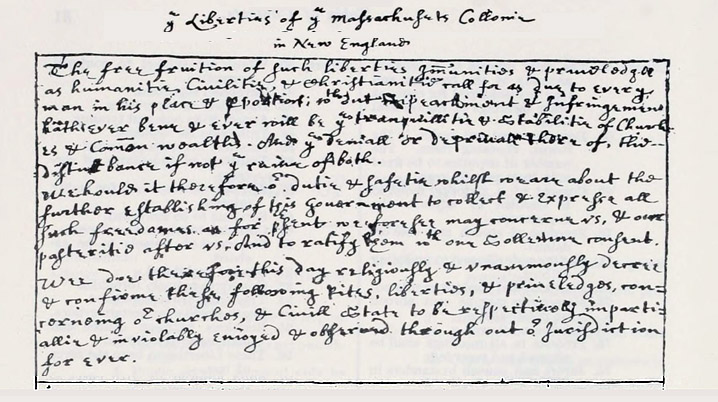 yͤ Liberties of yͤ Massachusets Collonie
in New England
The free fruition of such liberties Immunities & priveledges
as humanitie, Civilitie, & Christianitie call for as due to every
man in his place & proportion; wthout Impeachment & Infringement
hath ever bene & ever will be yͤ tranquillitie & Stabilitie of Church
es & Comon wealths. And yͤ deniall or deprivall there of, the
disturbance if not yͤ ruine of both.
We hould it therefore oͬ dutie & safetie whilst we are about the
further establishing of this Government to collect & expresse all
such freedomes as for present we foresee may concerne us, & our
posteritie after us, And to ratify them wth our Sollemne consent.
Wee doe therefore this day religiously & unanimously decree
& confirme these following Rites, liberties, & priveledges, con-
cerneing oͬ churches, & Civill State to be respectively imparti-
allie & inviolably enjoyed & observed through out oͬ Jurisdiction
for ever.